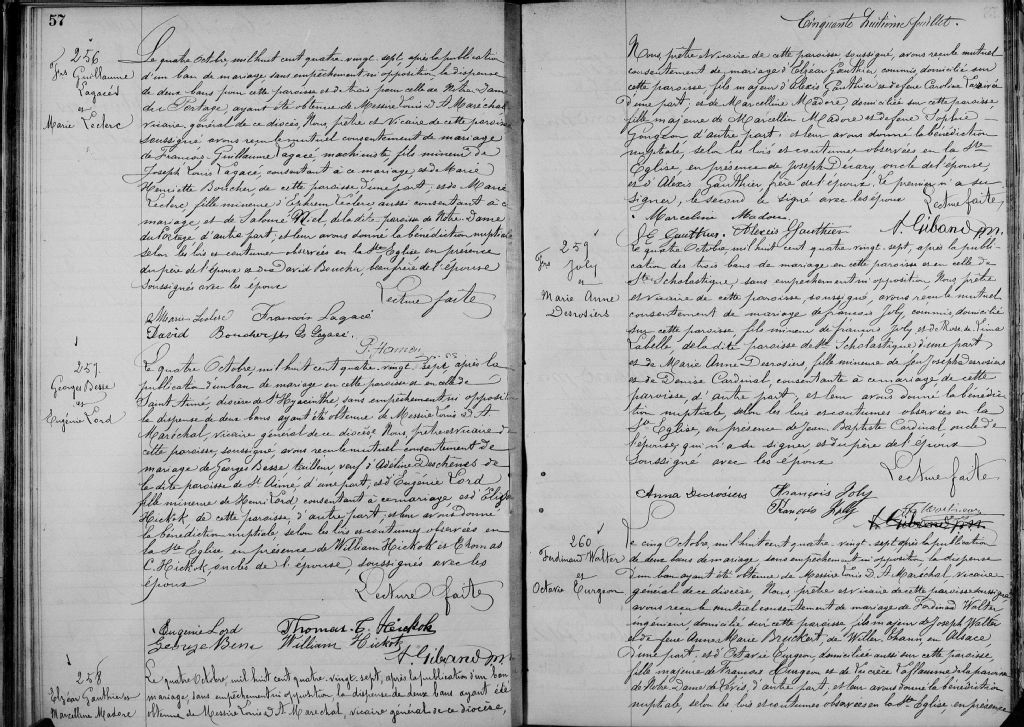 57
256
Frs Guillaume
Lagacé
et
Marie Leclerc
Le quatre Octobre, mil huit cent quatre vingt sept, après la publication
d'un ban de mariage sans empêchement ni opposition la dispense
de deux bans pour cette paroisse et de trois pour celle de Notre Dame
du Portage ayant été obtenue de Messire Louis D. A. Maréchal
vicaire général de ce diocèse, Nous prêtre et Vicaire de cette paroisse
soussigné avons reçu le mutuel consentement de mariage
de François Guillaume Lagacé machiniste, fils mineur de
Joseph Louis Lagacé, consentant à ce mariage et de Marie
Henriette Boucher de cette paroisse d'une part; et de Marie
Leclerc fille mineure d'Ephrem Leclerc aussi consentant à ce
mariage, et de Salomé Nel, de la dite paroisse de Notre-Dame
du Portage d'autre part; et leur avons donné la bénédiction nuptiale
selon les lois et coutumes observées en la Ste Eglise en présence
du père de l'époux et de David Boucher, beau frère de l'épouse
soussignés avec les époux
Lecture faite
Marie Leclerc François Lagacé
David Boucher Js Ls Lagacé
257
Georges Besse
et
Eugénie Lord
Le quatre Octobre, mil huit cent quatre vingt Sept, après la
publication d'un ban de mariage en cette paroisse et en celle de
Saint Aimé, diocèse de St Hyacinthe sans empêchement ni opposition
la dispense de deux bans ayant été obtenue de Messire Louis D. A
Maréchal, vicaire général de ce diocèse Nous, prêtre et vicaire de
cette paroisse, soussigné, avons reçu le mutuel consentement de
mariage de Georges Besse tailleur, veuf d'Adeline Deschênes de
la dite paroisse de St Aimé, d'une part, et d'Eugénie Lord
fille mineure de Henri Lord consentant à ce mariage et d'Eliza
Hickok de cette paroisse, d'autre part et leur avons donné
la bénédiction nuptiale, selon les lois et coutumes observées en
la Ste Eglise en présence de William Hickok et Thomas
C. Hickok, oncles de l'épouse, soussignés avec les
époux
Lecture faite
Eugenie Lord Thomas. C. Hickok
George Bess William Hickok
A. Giband ptr.
258
Elzéar Gauthier et
Marcelline Madore
Le quatre Octobre, mil huit cent quatre vingt, sept, après la publication d'un ban
mariage, sans empêchement ni opposition, la dispense de deux bans ayant été
obtenue de Messire Louis D. A. Maréchal, vicaire général de ce diocèse,
Cinquante huitième feuillet.
Nous prêtre et vicaire de cette paroisse soussigné, avons reçu le mutuel
consentement de mariage d'Elzéar Gauthier, commis, domicilié sur
cette paroisse, fils majeur d'Alexis Gauthier et de feue Caroline
d'une part, et de Marcelline Madore, domiciliée sur cette paroisse
fille majeure de Marcellin Madore et de feue Sophie
Gougeon d'autre part, et leur avons donné la bénédiction
nuptiale, selon les lois et coutumes observées en la Ste
Eglise, en présence de Joseph Décary oncle de l'épouse,
et d'Alexis Gauthier frère de l'époux. Le premier n'a su
signer, le second le signe avec les époux
Lecture faite,
Marceline Madore
J E Gauthier. Alexis Gauthier A. Giband ptr.
259
Frs
Joly
et
Marie Anne
Desrosiers
Le quatre Octobre, mil huit cent quatre vingt. sept, après la publi-
cation des trois bans de mariage en cette paroisse et en celle de
Ste Scholastique, sans empêchement ni opposition Nous prêtre
et vicaire de cette paroisse soussigné, avons reçu le mutuel
consentement de mariage de françois Joly, commis, domicilié
sur cette paroisse, fils mineur de françois Joly et de Rose de Lima
Labelle, de la dite paroisse de Ste Scholastique d'une part
et de Marie Anne Desrosiers, fille mineure de feu Joseph Desrosiers
et de Denise Cardinal, consentante à ce mariage de cette
paroisse, d'autre part, et leur avons donné la bénédic-
tion nuptiale, selon les lois et coutumes observées en la
Ste Eglise, en présence de Jean Baptiste Cardinal oncle de
l'épouse, qui n'a su signer, et du père de l'époux
soussigné avec les époux
Lecture faite
Anna Desrosiers François Joly
François Joly
A Giband ptr.
260
Ferdinand Walter
et
Octavie Turgeon
Le cinq Octobre, mil huit cent quatre-vingt sept après la publication
de deux bans de mariage sans empêchement ni opposition, la dispense
d'un ban ayant été obtenue de Messire Louis D. A. Maréchal, vicaire
général de ce diocèse, Nous, prêtre et vicaire de cette paroisse soussigné
avons reçu le mutuel consentement de mariage de Ferdinand Walter
ingénieur domicilié sur cette paroisse fils majeur de Joseph Walter
et de feue Anne Marie Bruckert, de Willer Thann en Alsace
d'une part; et d'Octavie Turgeon, domiciliée aussi sur cette paroisse,
fille majeure de Francois Turgeon et de Lucrèce Laflamme de la paroisse
de Notre Dame de Lévis, d'autre part, et leur avons donné la bénédiction
nuptiale, selon les lois et coutumes observées en la Ste Eglise, en présence